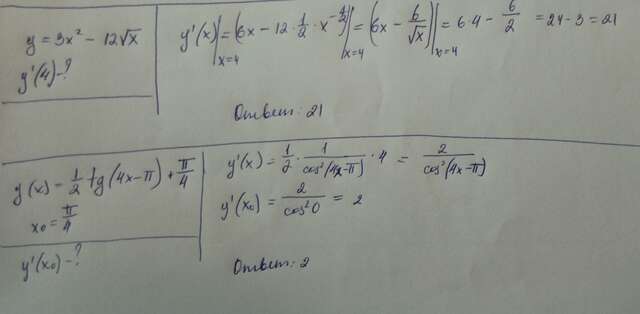 y = 3x² − 12√x
y'(4) - ?
y'(x)|ₓ₌₄ = (6x − 12 · 1/2 · x^(−1/2))|ₓ₌₄ = (6x − 6/√x)|ₓ₌₄ = 6·4 − 6/2 = 24 − 3 = 21
Ответ: 21
y(x) = 1/2 tg(4x−π) + π/4
x₀ = π/4
y'(x₀) - ?
y'(x) = 1/2 · 1/cos²(4x−π) · 4 = 2/cos²(4x−π)
y'(x₀) = 2/cos²0 = 2
Ответ: 2